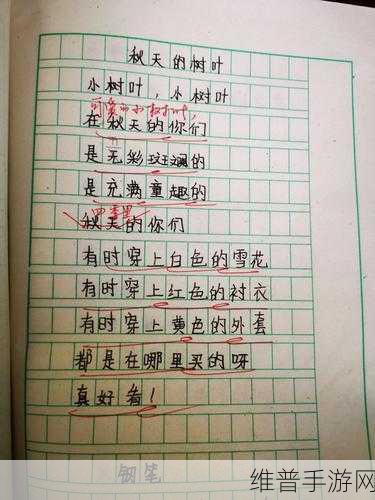 秋天的树叶
小树叶，小树叶
可爱的小树叶，
在秋天的你们
是无彩斑斓的
是充满童趣的
秋天的你们
有时穿上白色的雪花
有时穿上红色的衬衣
有时穿上黄色的外套
都是在哪里买的呀
真好看！
钢笔
维普手游网